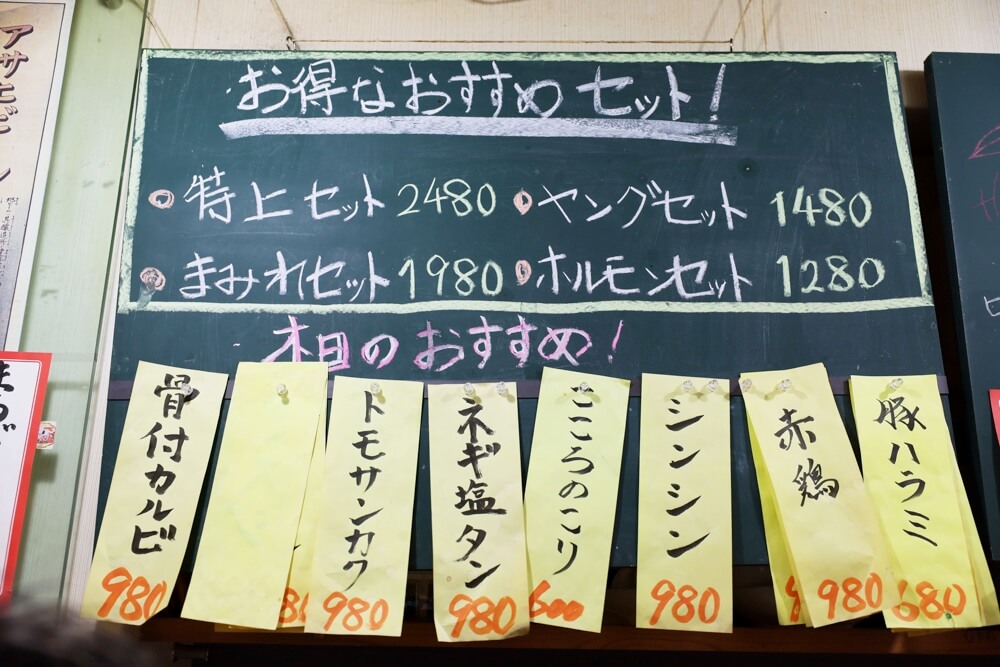 お得なおすすめセット!
特上セット 2480
ヤングセット 1480
まみれセット 1980
ホルモンセット 1280
本日のおすすめ!
骨付カルビ
980
トモサンカク
980
ネギ塩タン
980
こころのこり
600
シンシン
980
赤鶏
980
豚ハラミ
680
アサヒビ